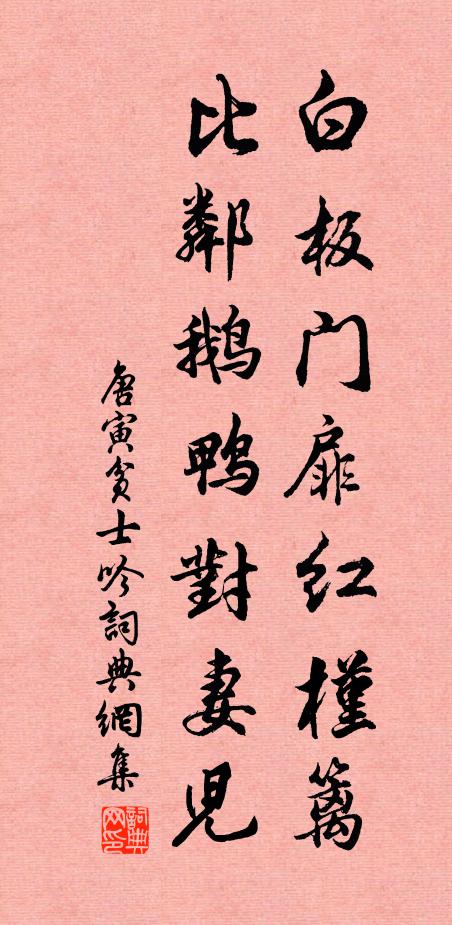 白板门扉红槿篱
比邻鹅鸭對妻児
唐寅贫士吟詞典網集
詞典网印